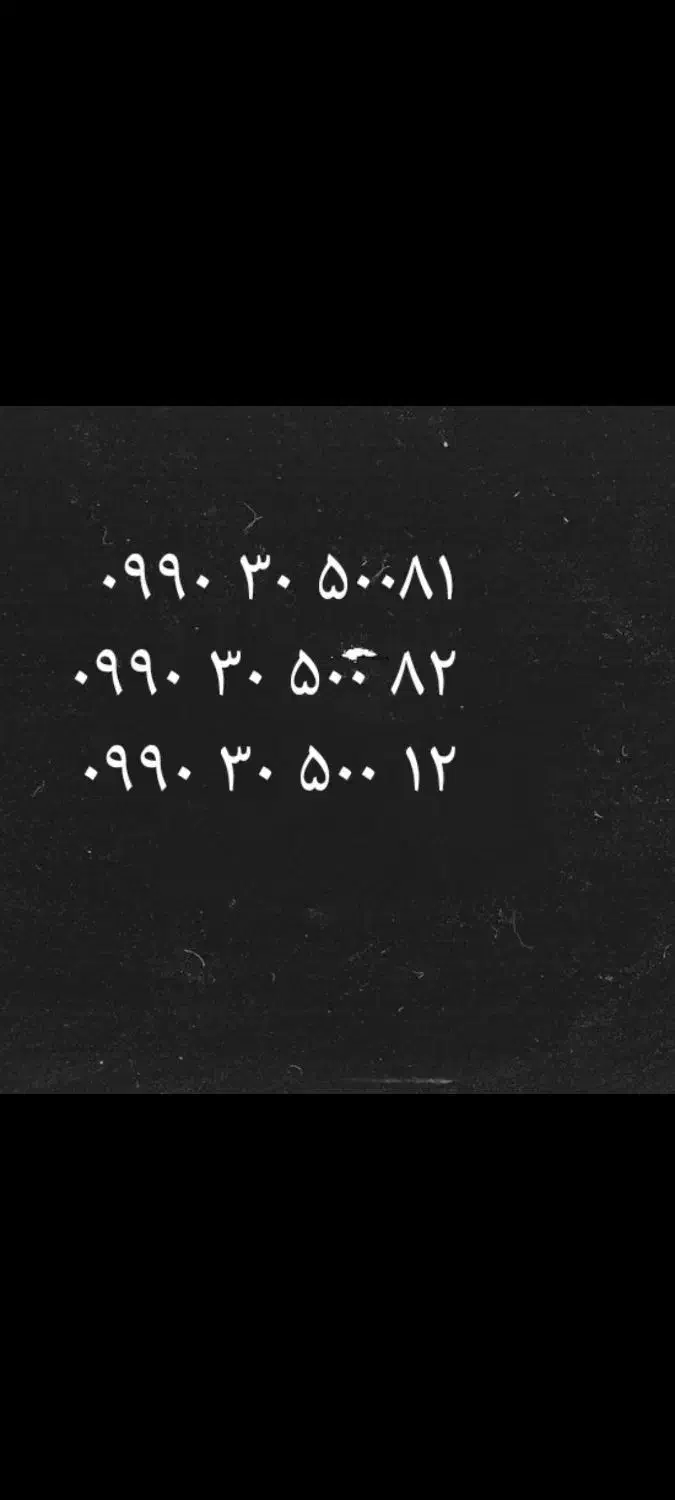 ۰۹۹۰ ۳۰ ۵۰۰۸۱
۰۹۹۰ ۳۰ ۵۰۰ ۸۲
۰۹۹۰ ۳۰ ۵۰۰ ۱۲